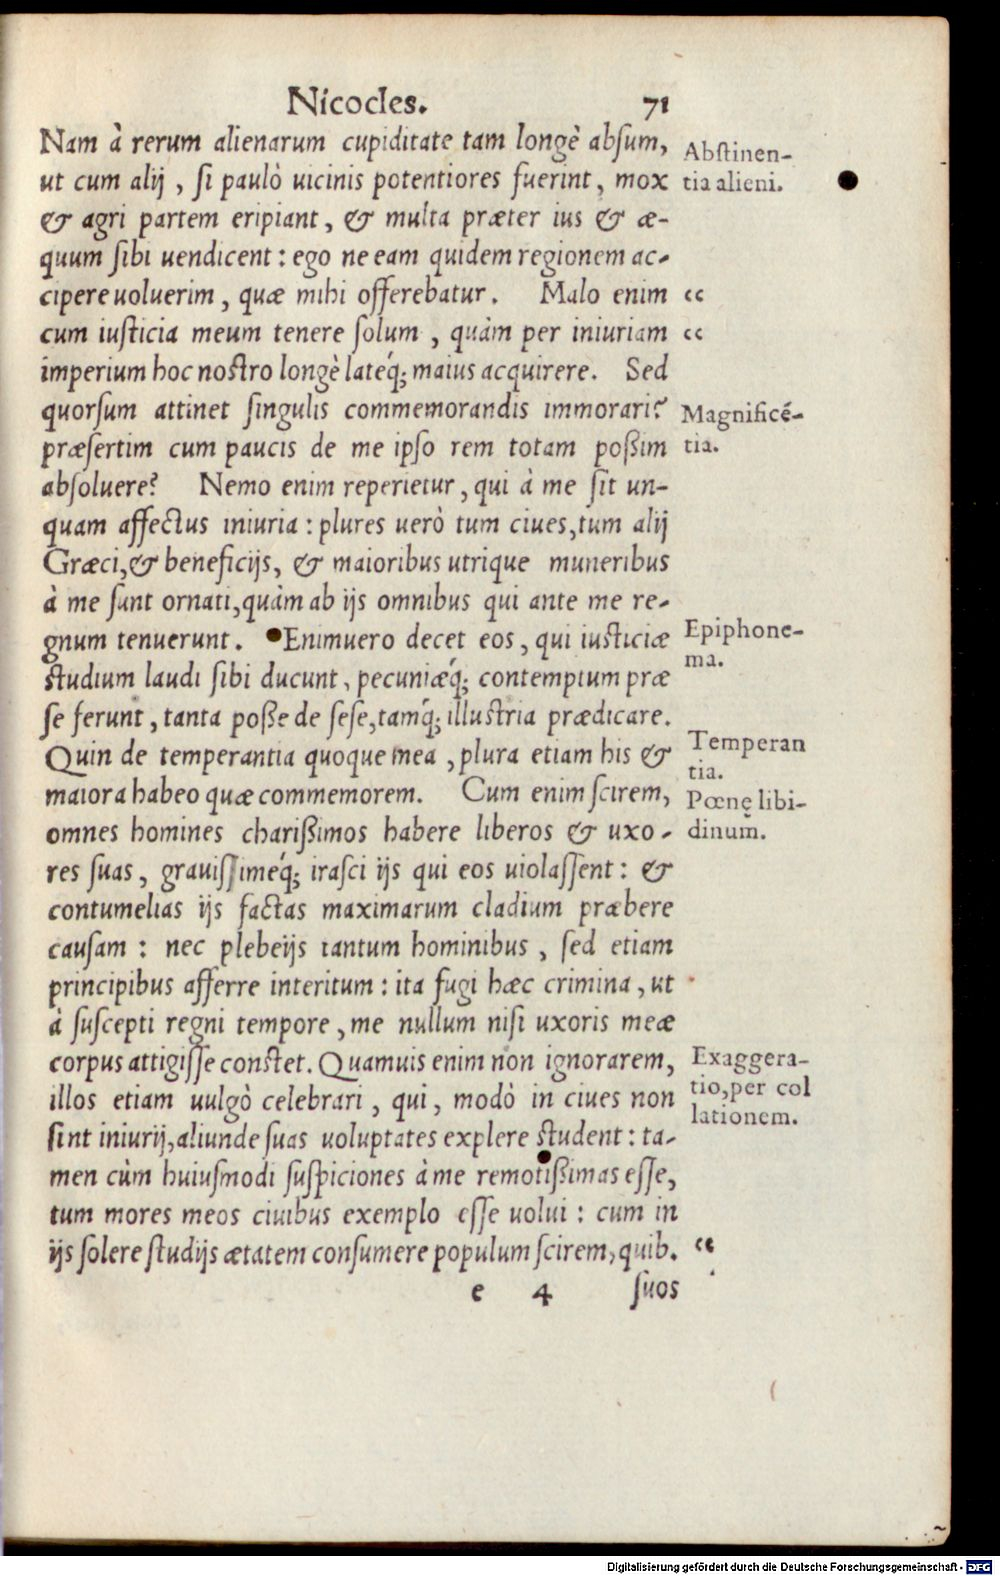 Nicocles. 71
Nam à rerum alienarum cupiditate tam longè absum,
ut cum alij, si paulò uicinis potentiores fuerint, mox
& agri partem eripiant, & multa præter ius & æ-
quum sibi uendicent: ego ne eam quidem regionem ac-
cipere uoluerim, quæ mihi offerebatur. Malo enim
cum iusticia meum tenere solum, quàm per iniuriam
imperium hoc nostro longè lateq́; maius acquirere. Sed
quorsum attinet singulis commemorandis immorari?
præsertim cum paucis de me ipso rem totam poßim
absoluere? Nemo enim reperietur, qui à me sit un-
quam affectus iniuria: plures uerò tum ciues, tum alij
Græci, & beneficijs, & maioribus utrique muneribus
à me sunt ornati, quàm ab ijs omnibus qui ante me re-
gnum tenuerunt. Enimuero decet eos, qui iusticiæ
studium laudi sibi ducunt, pecuniæq́; contemptum præ
se ferunt, tanta poße de sese, tamq́; illustria prædicare.
Quin de temperantia quoque mea, plura etiam his &
maiora habeo quæ commemorem. Cum enim scirem,
omnes homines charißimos habere liberos & uxo-
res suas, grauissimeq́; irasci ijs qui eos uiolassent: &
contumelias ijs factas maximarum cladium præbere
causam: nec plebeijs tantum hominibus, sed etiam
principibus afferre interitum: ita fugi hæc crimina, ut
à suscepti regni tempore, me nullum nisi uxoris meæ
corpus attigisse constet. Quamuis enim non ignorarem,
illos etiam uulgò celebrari, qui, modò in ciues non
sint iniurij, aliunde suas uoluptates explere student: ta-
men cùm huiusmodi suspiciones à me remotißimas esse,
tum mores meos ciuibus exemplo esse uolui: cum in
ijs solere studijs ætatem consumere populum scirem, quib.
e 4 suos
Abstinen-
tia alieni.
“
“
Magnificẽ-
tia.
Epiphone-
ma.
Temperan
tia.
Pœnę libi-
dinum̃.
Exaggera-
tio, per col
lationem.
“
Digitalisierung gefördert durch die Deutsche Forschungsgemeinschaft - DFG